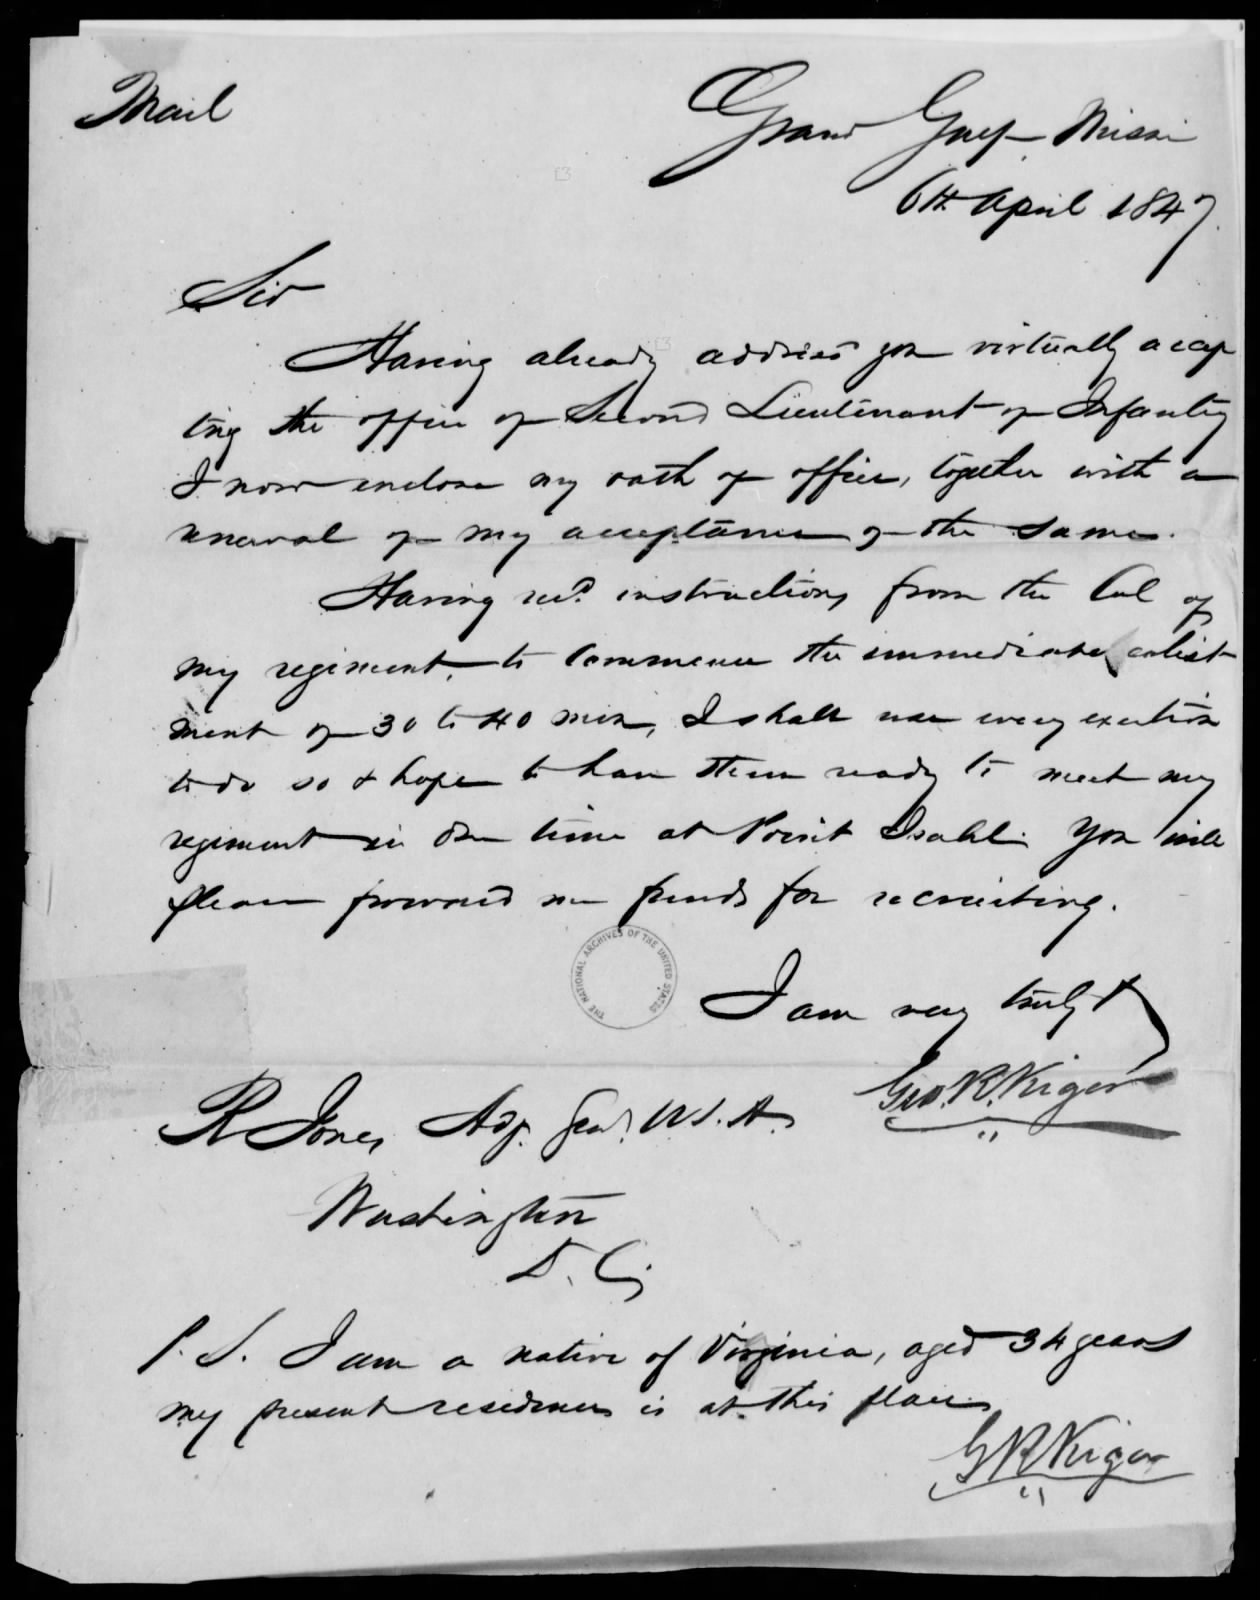 Mail
Grand Gulf Missi
6th April 1847.
Sir
Having already address you virtually accep
ting the office of Second Lieutenant of Infantry
I now enclose my oath of office, together with a
renewal of my acceptance of the same.
Having recd. instructions from the Col of
my regiment, to commence the immediate enlist
ment of 30 to 40 men, I shall use every exertion
to do so & hope to have them ready to meet my
regiment in due time at Point Isabel. You will
please forward me funds for recruiting.
THE NATIONAL ARCHIVES OF THE UNITED STATES
I am very truly &
Geo. R. Kiger
R Jones, Adj. Genl. U.S.A.
Washington
D. C,
P. S. I am a native of Virginia, aged 34 years
my present residence is at this place
G R Kiger